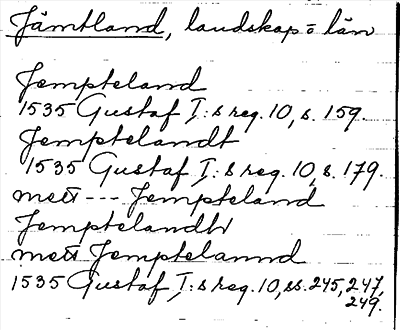 Jämtland, landskap o län
Jempteland
1535 Gustaf I:s reg. 10, s. 159.
Jemptelandt
1535 Gustaf I:s reg. 10, s. 179.
mett --- Jempteland
Jemptelandtt
mett Jemptelannd
1535 Gustaf I:s reg. 10, ss. 245, 247,
249.